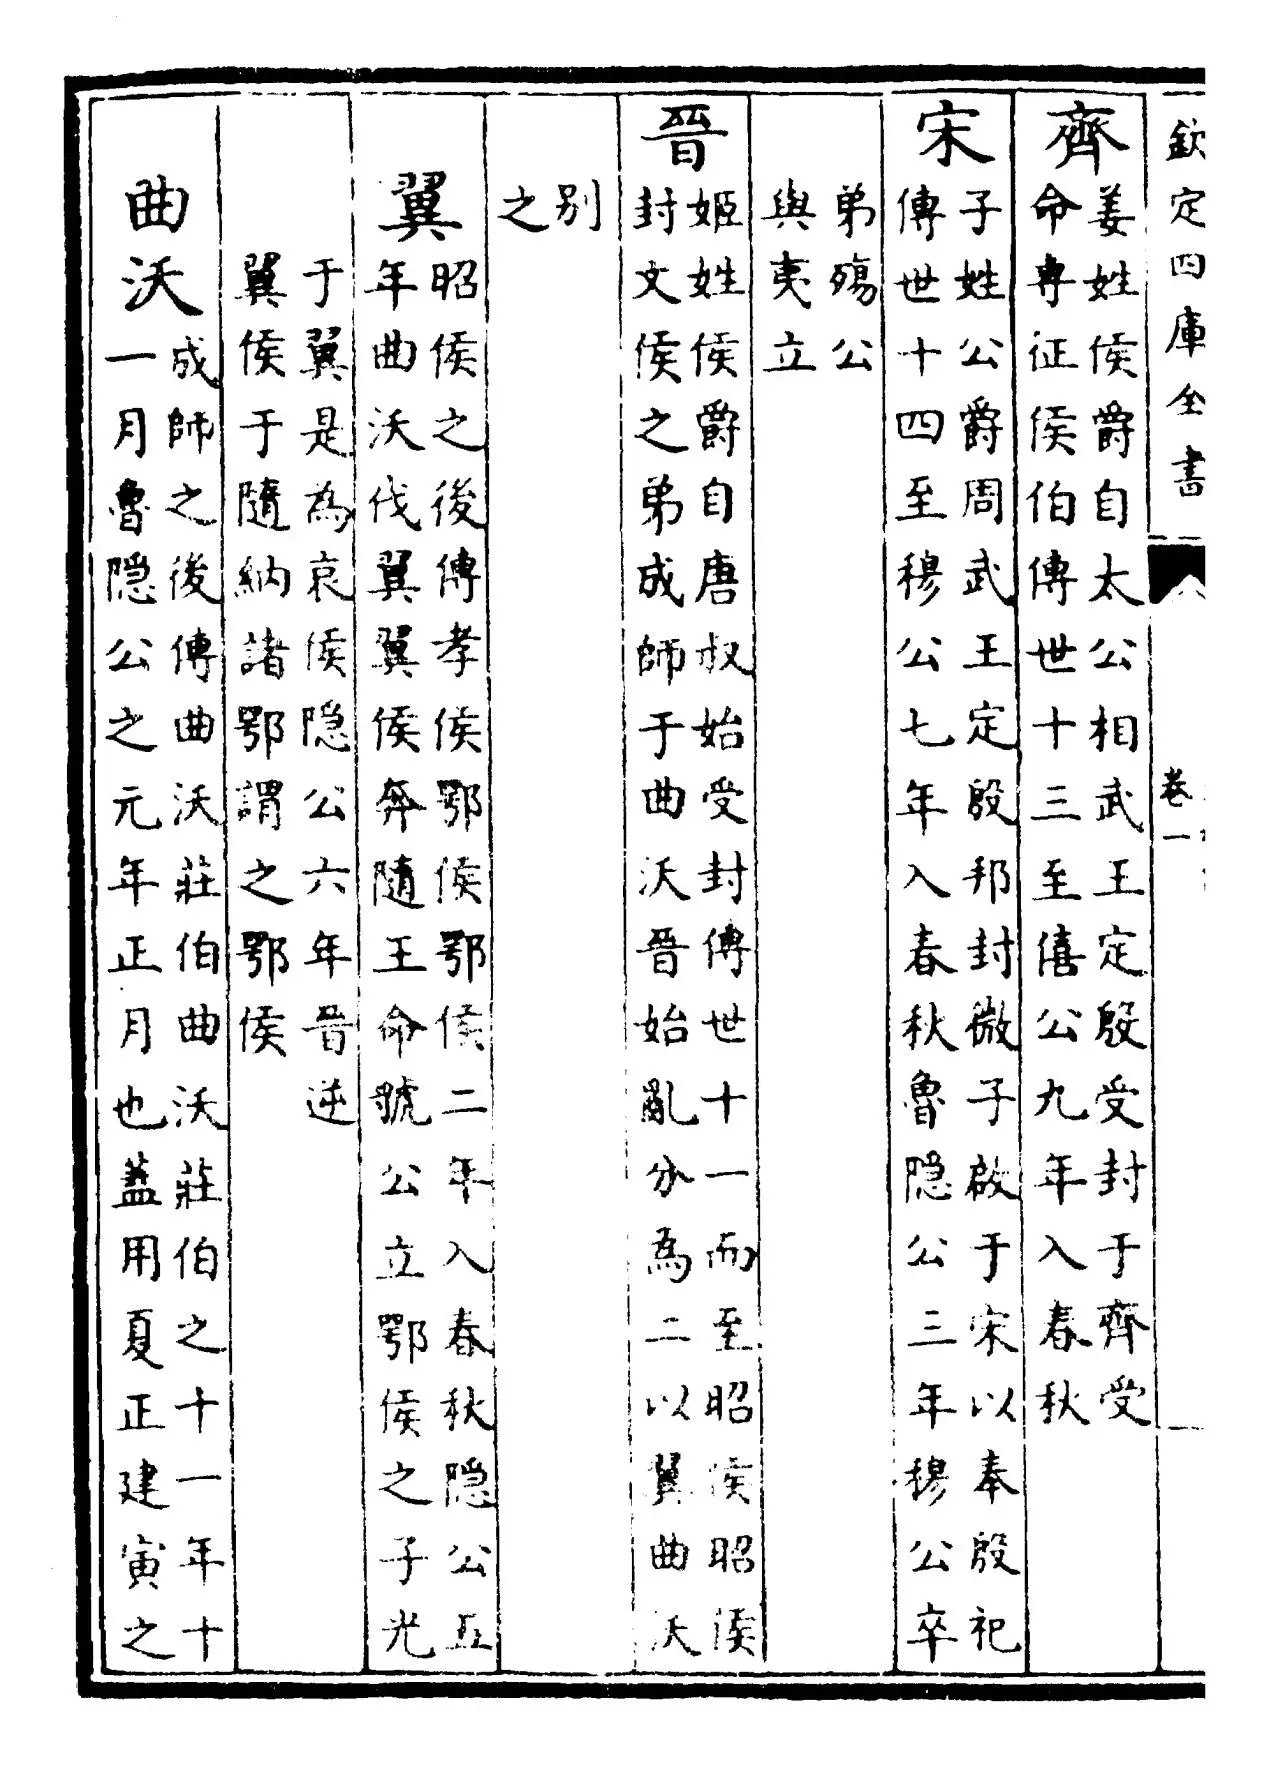 欽定四庫全書
卷一
齊
姜姓侯爵自太公相武王定殷受封于齊受
命專征侯伯傳世十三至僖公九年入春秋
宋
子姓公爵周武王定殷邦封微子啟于宋以奉殷祀
傳世十四至穆公七年入春秋魯隐公三年穆公卒
弟殤公
與夷立
晉
姬姓侯爵自唐叔始受封傳世十一而至昭侯昭侯
封文侯之弟成師于曲沃晉始亂分為二以翼曲沃
别
之
翼
昭侯之後傳孝侯鄂侯鄂侯二年入春秋隐公五
年曲沃伐翼翼侯奔隨王命虢公立鄂侯之子光
于翼是為哀侯隐公六年晉逆
翼侯于隨納諸鄂謂之鄂侯
曲沃
成師之後傳曲沃莊伯曲沃莊伯之十一年十
一月魯隐公之元年正月也蓋用夏正建寅之